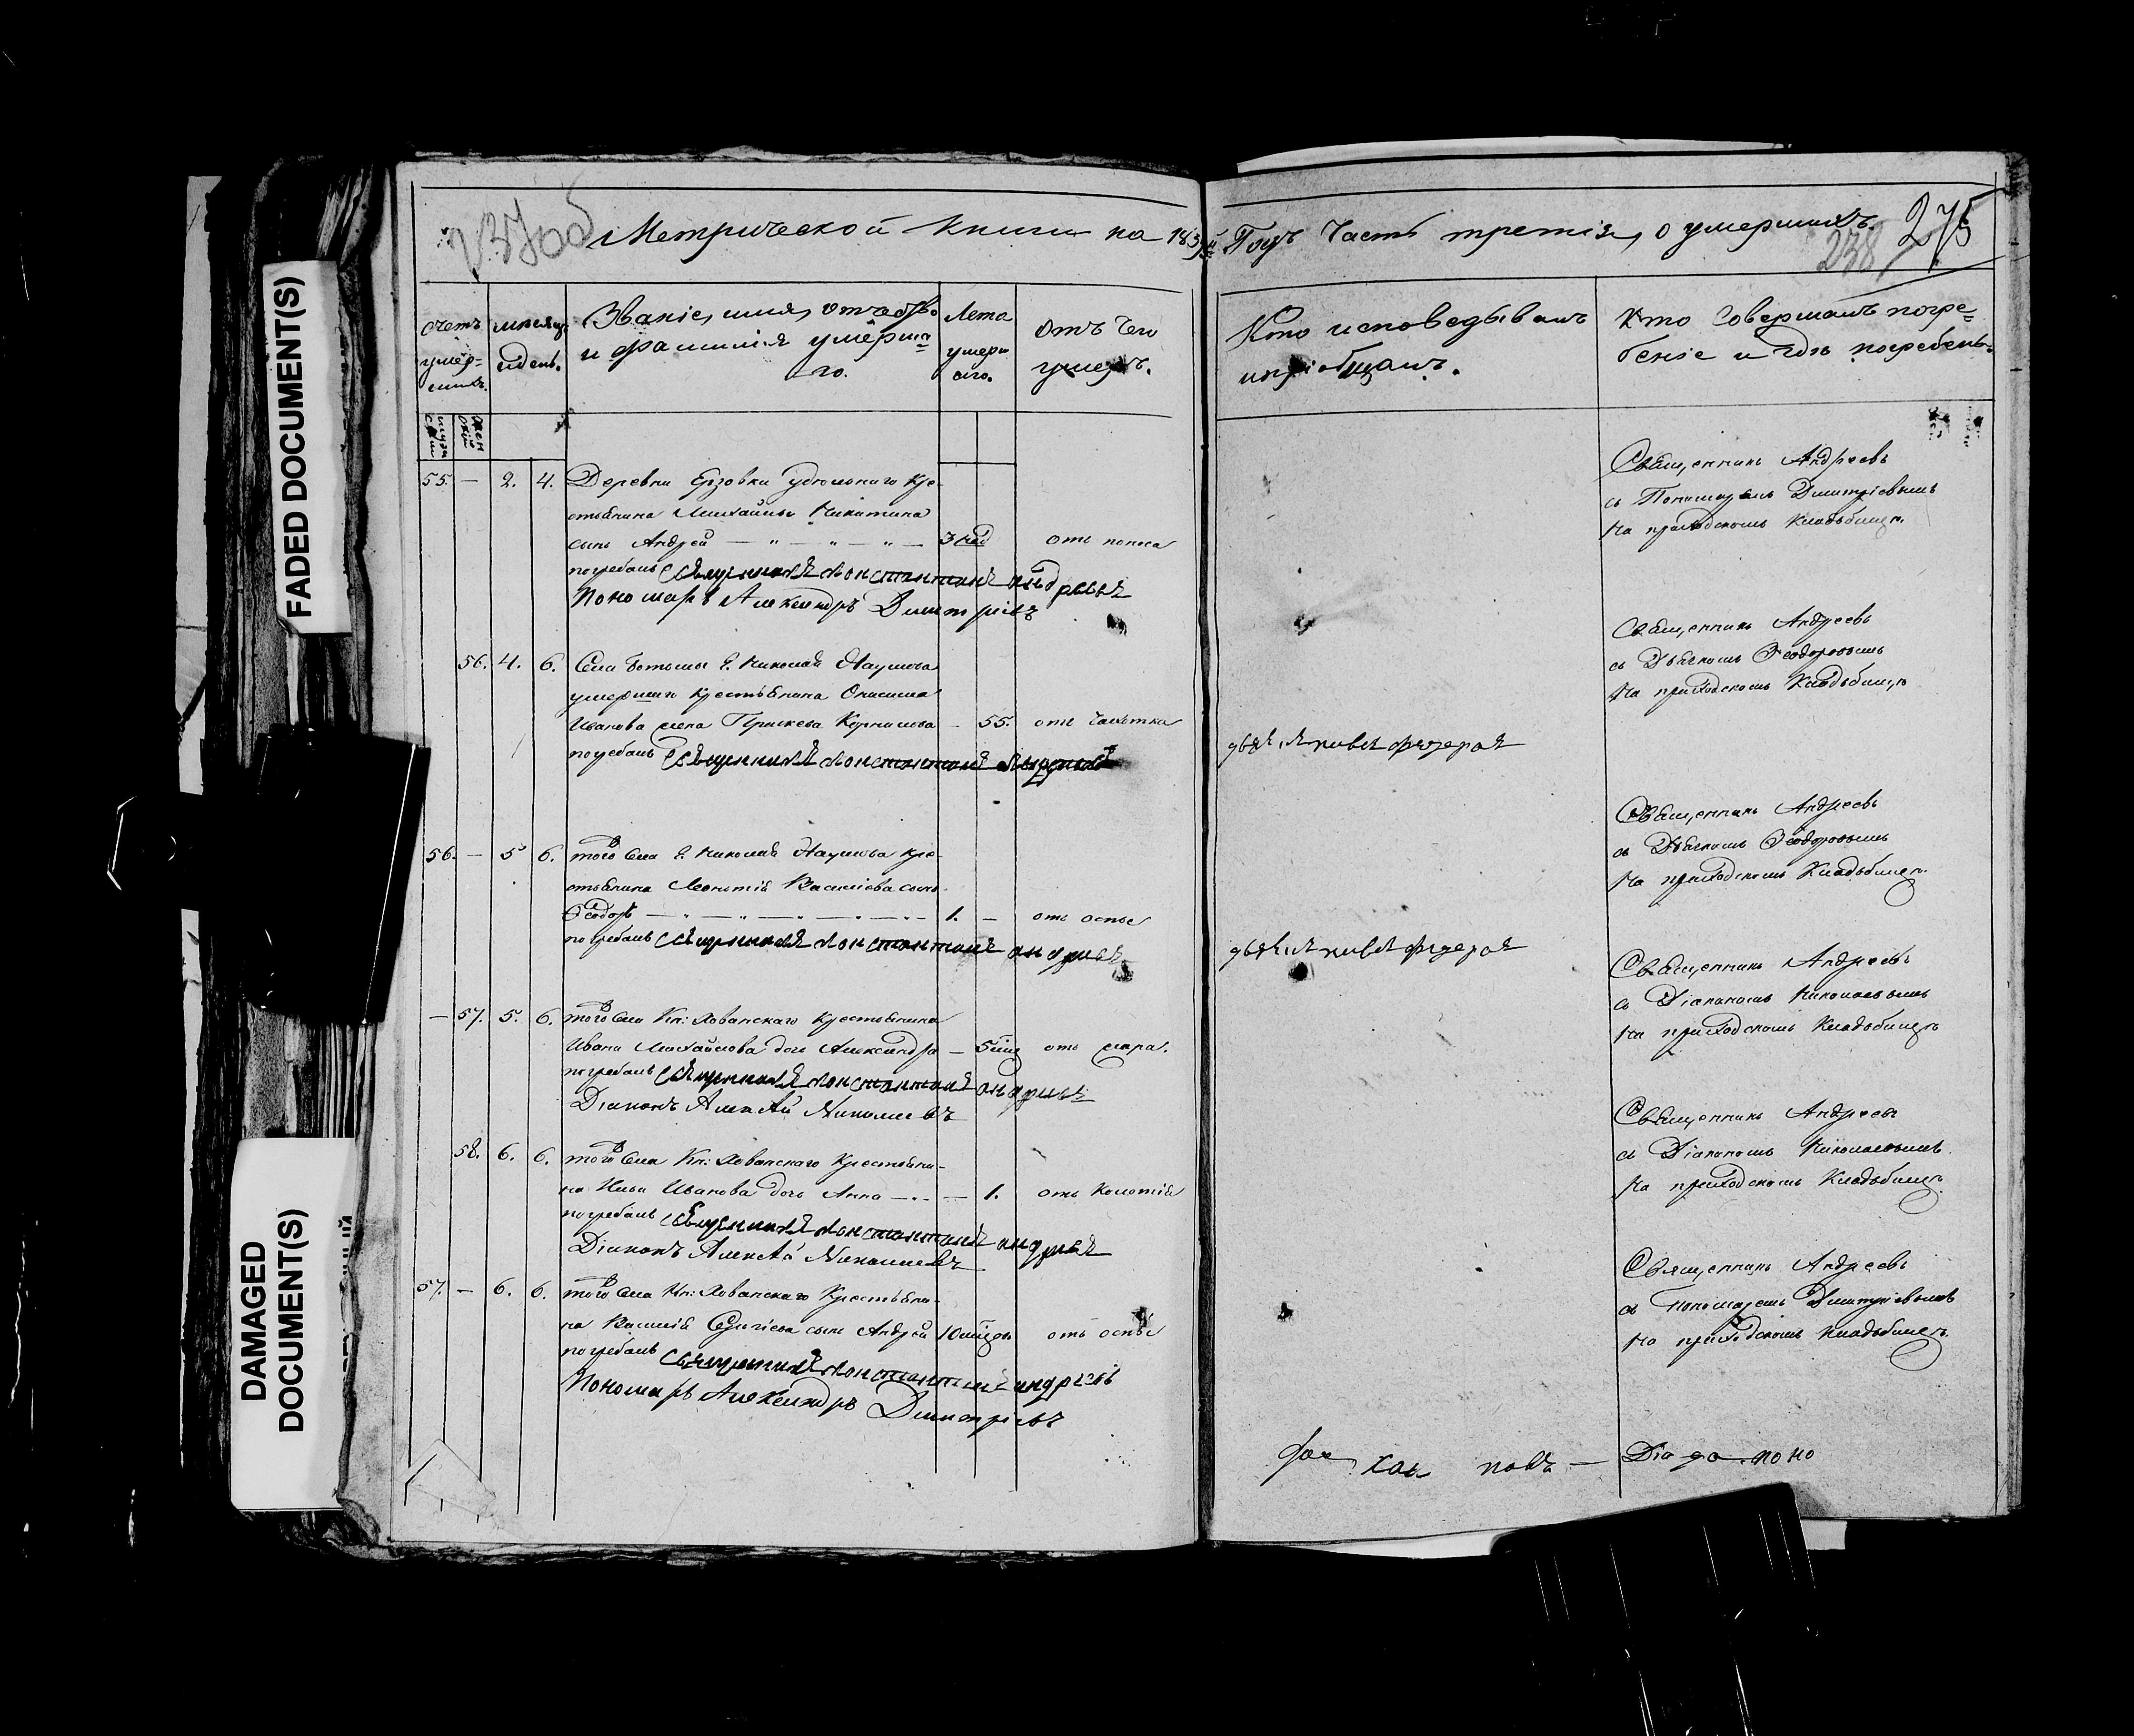 FADED DOCUMENT(S)
DAMAGED
DOCUMENT(S)
Метрической Книги на 183
Годъ Часть третія, о умершихъ.
238
275
Счетъ умер-шихъ.
мѣсяцъ и день.
Званіе, имя, отчество
и фамилія умерша
го.
Лета
умерш
аго.
Отъ чего
умеръ.
Кто исповедывалъ
и пріобщалъ.
Кто совершалъ погре=
беніе и гдѣ погребены.
55. — 2. 4. Деревни Ерзовки удѣльнаго Кре-
стьянина Михайлы Никитина
сынъ Андрей — " — " — " — 3 нед отъ поноса
погребалъ Священникъ Константинъ Андреевъ
Пономарь Александръ Димитріевъ
Священникъ Андреевъ
съ Пономаремъ Димитріевымъ
На приходскомъ Кладьбищѣ.
56. 4. 6. Села Ботьмы Г. Николая Наумова
умершаго крестьянина Онисима
Иванова жена Прасковья Корнилова — 55. отъ чахотки
погребалъ Священникъ Константинъ Андреевъ
дьячекъ Федоровъ
Священникъ Андреевъ
съ Дьячкомъ Ѳеодоровымъ
На приходскомъ Кладьбищѣ
56. — 5 6. того Села Г. Николая Наумова кре-
стьянина Леонтія Васильева сынъ
Ѳеодоръ — " — " — " — 1. — отъ оспы
погребалъ Священникъ Константинъ Андреевъ
дьячекъ Федоровъ
Священникъ Андреевъ
съ Дьячкомъ Ѳеодоровымъ
На приходскомъ Кладьбищѣ.
— 57. 5. 6. того Села Кн: Хованскаго Крестьянина
Ивана Михайлова дочь Александра — 5 отъ жара.
погребалъ Священникъ Константинъ Андреевъ
Діаконъ Алексѣй Николаевъ
Священникъ Андреевъ
съ Діакономъ Николаевымъ
На приходскомъ Кладьбищѣ
58. 6. 6. того Села Кн: Хованскаго Крестьяни-
на Ильи Иванова дочь Анна — — 1. отъ Колотія
погребалъ Священникъ Константинъ Андреевъ
Діаконъ Алексѣй Николаевъ
Священникъ Андреевъ
съ Діакономъ Николаевымъ.
На приходскомъ Кладьбищѣ.
57. — 6. 6. того Села Кн: Хованскаго Крестьяни-
на Василія Сергіева сынъ Андрей 10 отъ оспы
погребалъ Священникъ Константинъ Андреевъ
Пономарь Александръ Димитріевъ
Священникъ Андреевъ
съ Пономаремъ Димитріевымъ
На приходскомъ Кладьбищѣ.